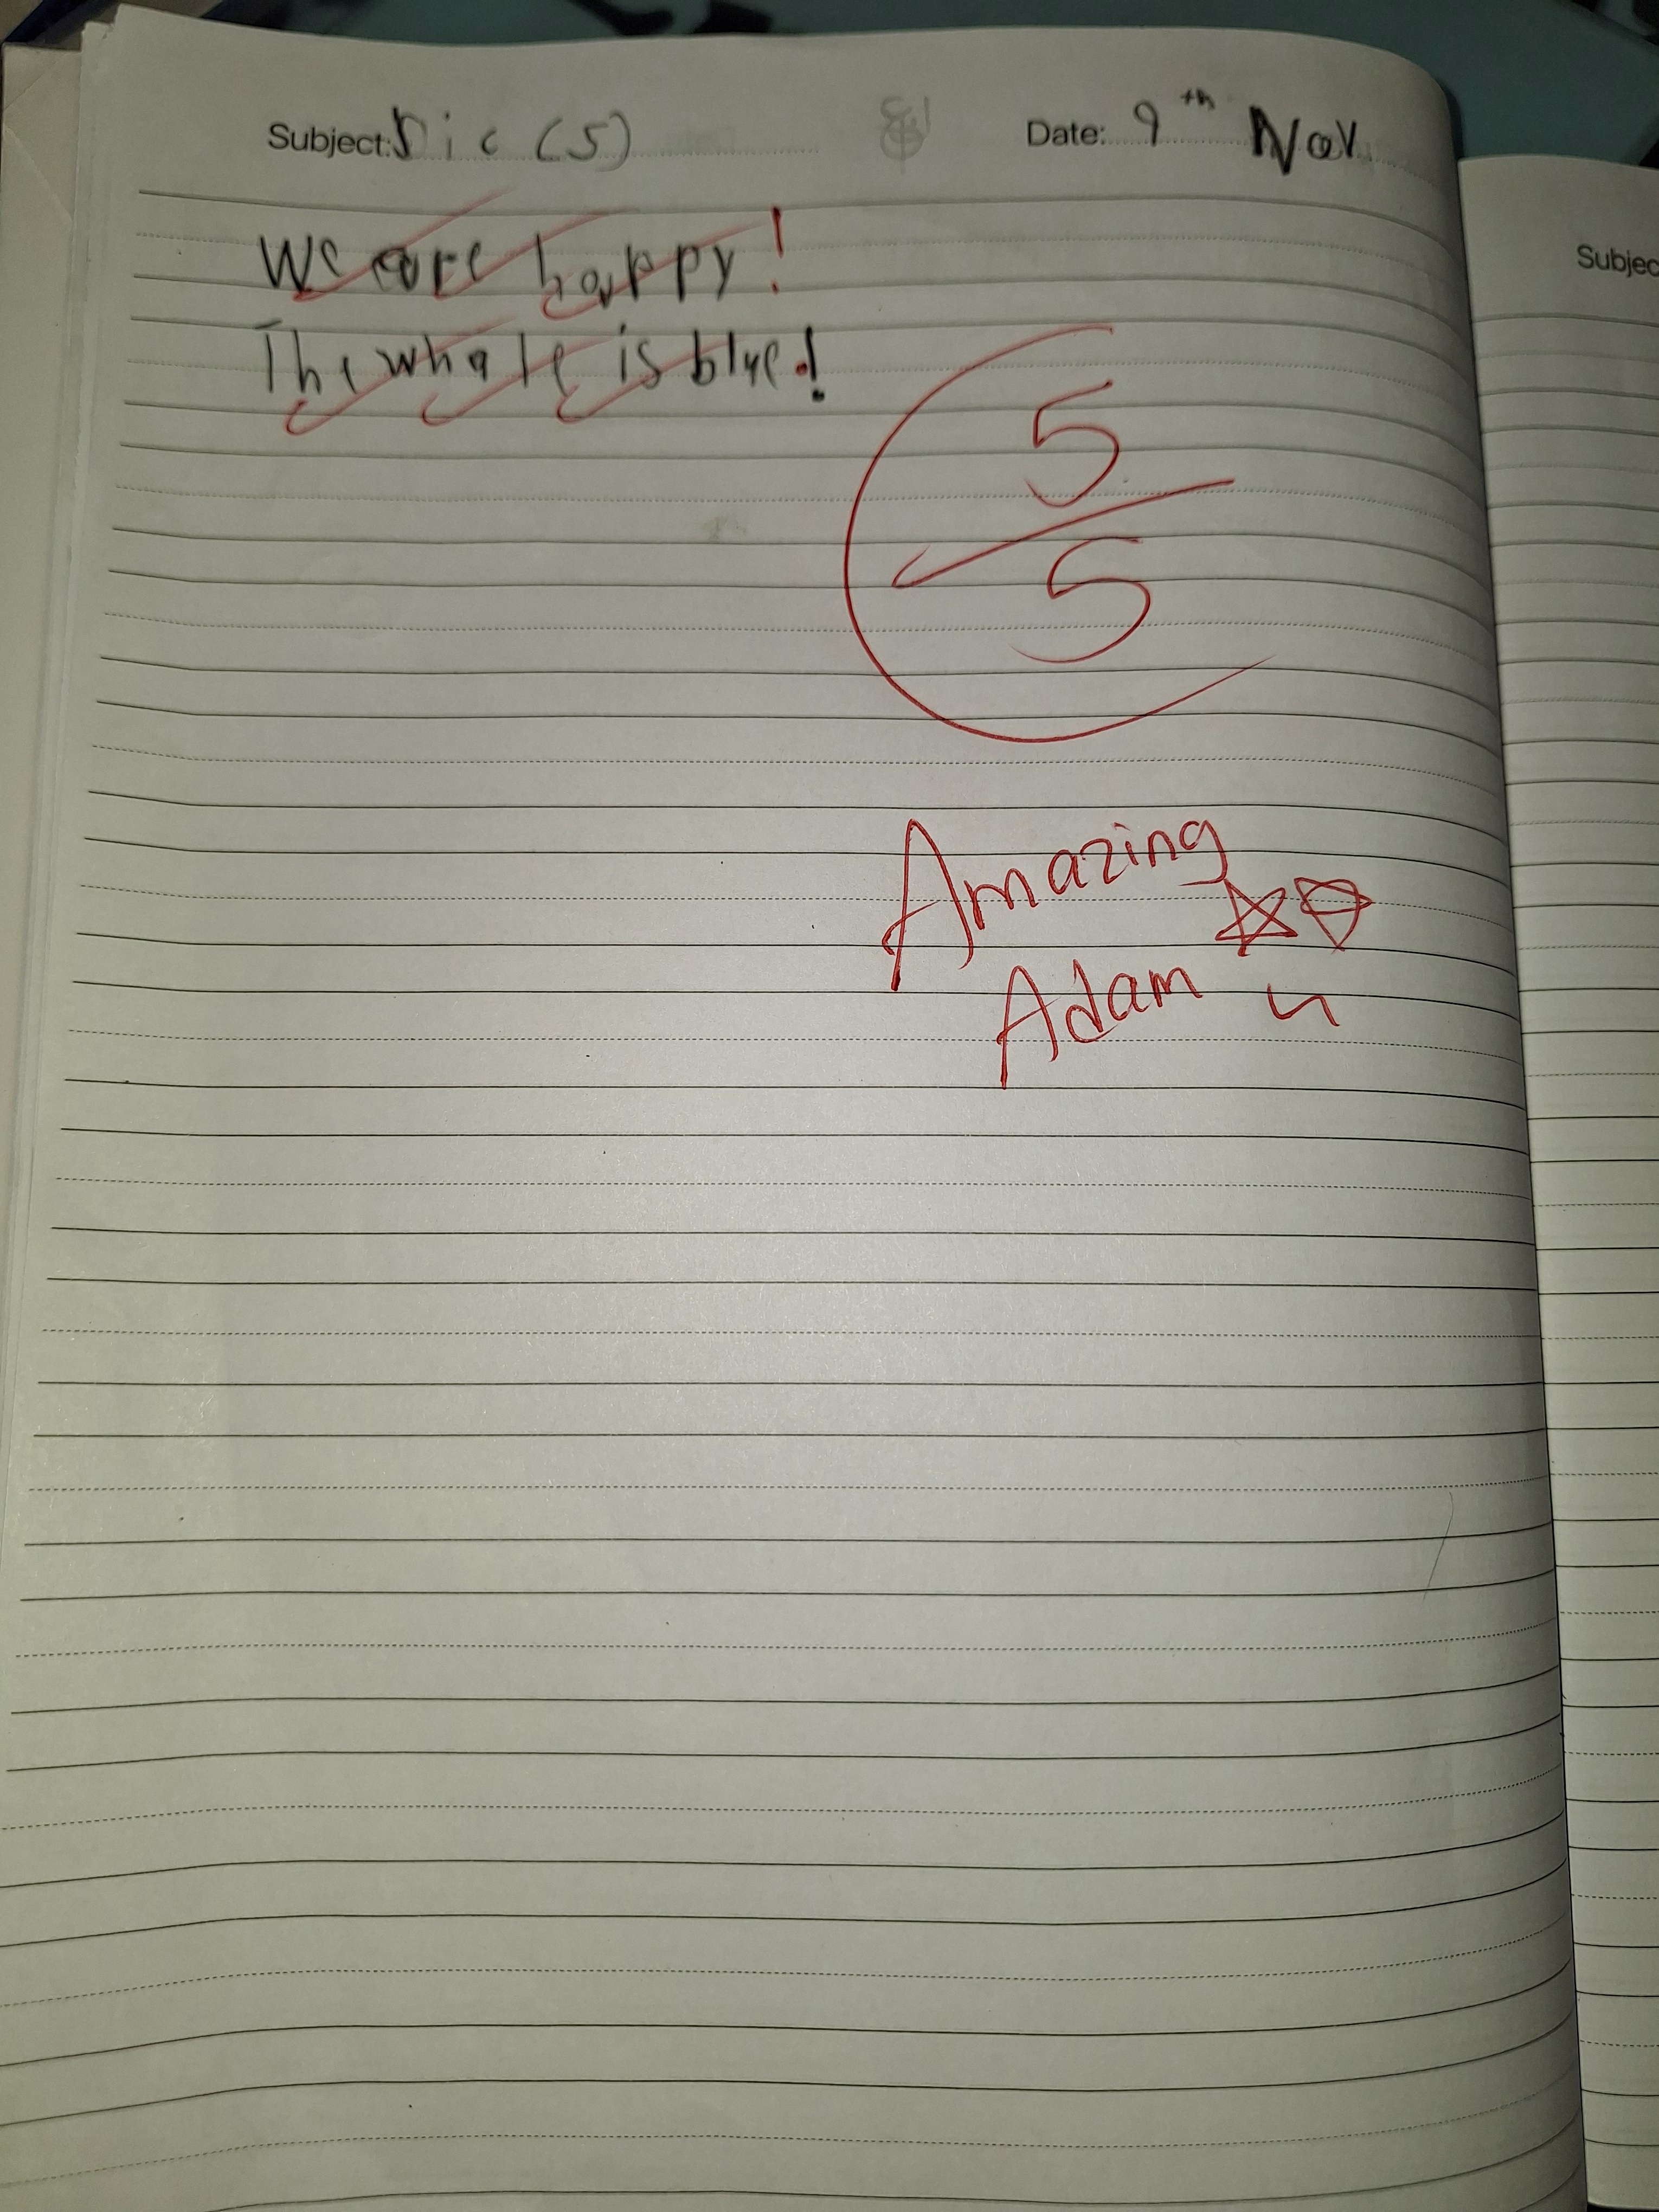 Subject: Dic (5) Date: 9th Nov.
We are happy!
The whale is blue!
5
5
Amazing
Adam
Subjec